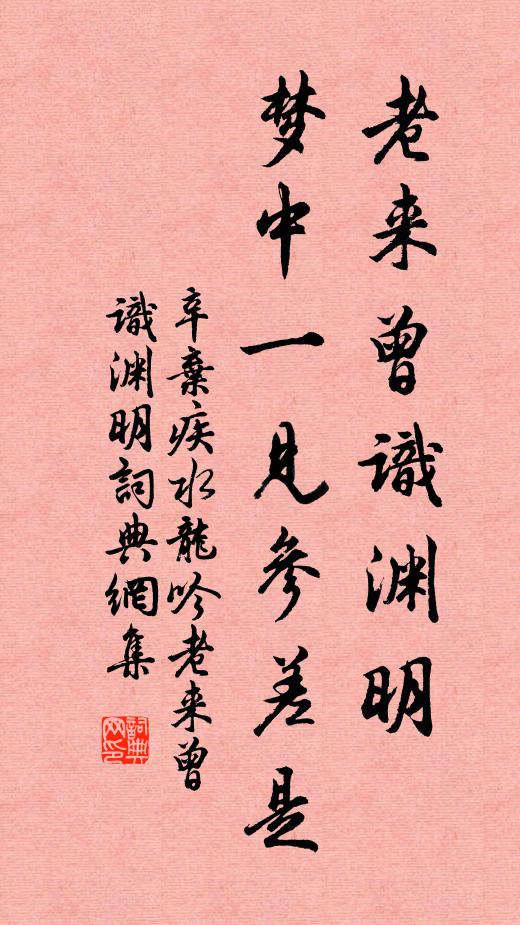 老来曾識渊明
梦中一見參差是
辛棄疾水龍吟老来曾
識渊明詞典網集
詞典
网印